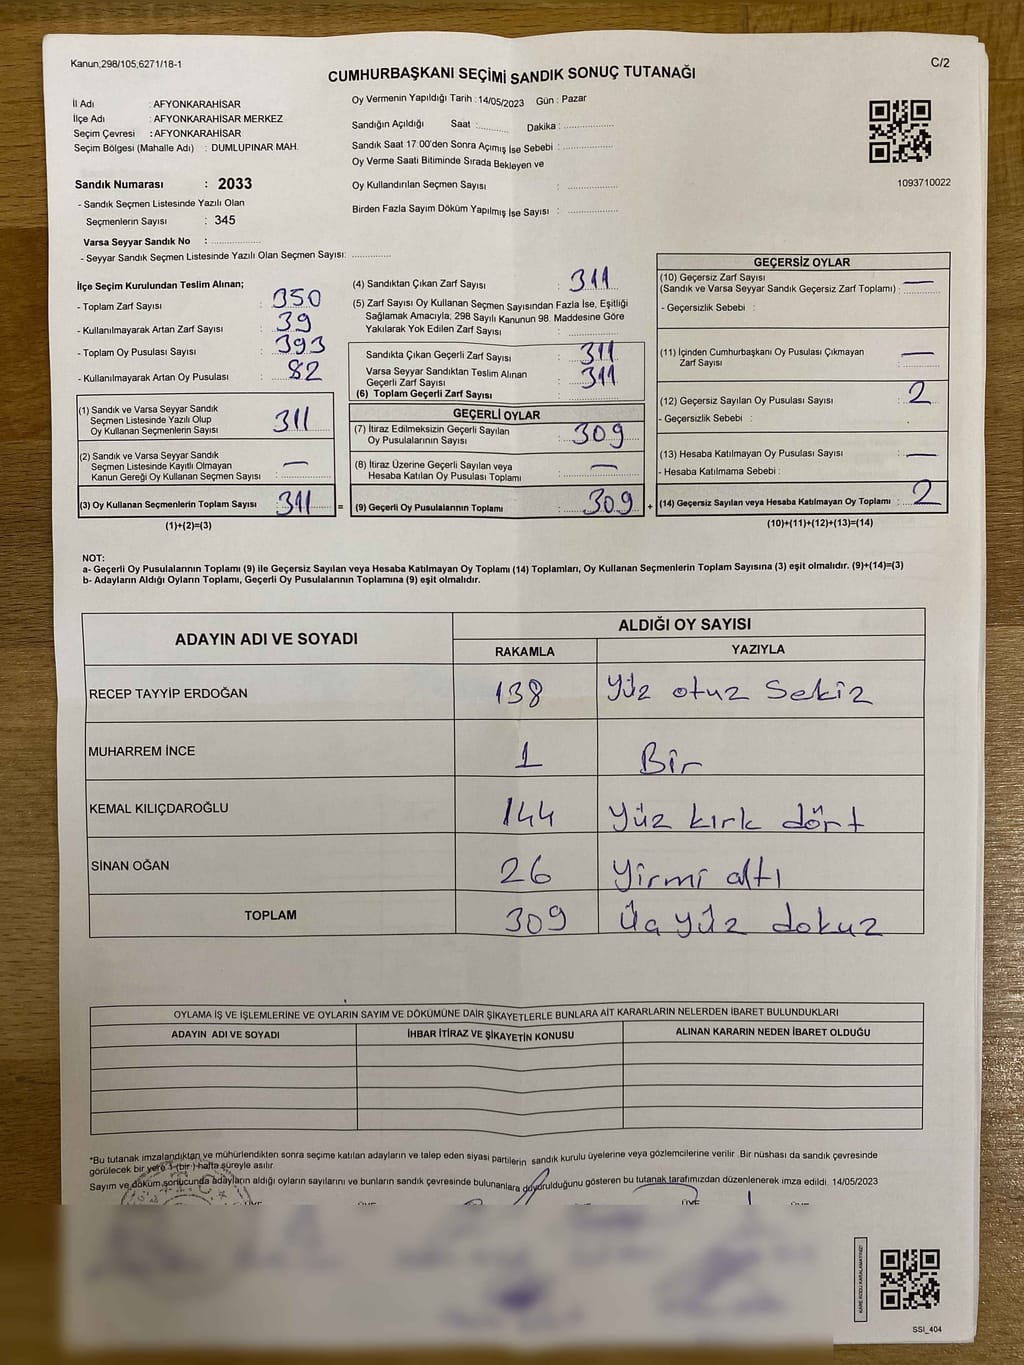 Kanun;298/105;6271/18-1
C/2
CUMHURBAŞKANI SEÇİMİ SANDIK SONUÇ TUTANAĞI
İl Adı : AFYONKARAHİSAR
İlçe Adı : AFYONKARAHİSAR MERKEZ
Seçim Çevresi : AFYONKARAHİSAR
Seçim Bölgesi (Mahalle Adı) : DUMLUPINAR MAH.
Sandık Numarası : 2033
- Sandık Seçmen Listesinde Yazılı Olan
Seçmenlerin Sayısı : 345
Varsa Seyyar Sandık No : ................
- Seyyar Sandık Seçmen Listesinde Yazılı Olan Seçmen Sayısı: .............
Oy Vermenin Yapıldığı Tarih : 14/05/2023 Gün : Pazar
Sandığın Açıldığı Saat :........... Dakika : ................
Sandık Saat 17:00'den Sonra Açımış İse Sebebi : ................
Oy Verme Saati Bitiminde Sırada Bekleyen ve
Oy Kullandırılan Seçmen Sayısı : ................
Birden Fazla Sayım Döküm Yapılmış İse Sayısı : ................
1093710022
İlçe Seçim Kurulundan Teslim Alınan;
- Toplam Zarf Sayısı : 350
- Kullanılmayarak Artan Zarf Sayısı : 39
- Toplam Oy Pusulası Sayısı : 393
- Kullanılmayarak Artan Oy Pusulası : 82
(1) Sandık ve Varsa Seyyar Sandık
Seçmen Listesinde Yazılı Olup
Oy Kullanan Seçmenlerin Sayısı : 311
(2) Sandık ve Varsa Seyyar Sandık
Seçmen Listesinde Kayıtlı Olmayan
Kanun Gereği Oy Kullanan Seçmen Sayısı : —
(3) Oy Kullanan Seçmenlerin Toplam Sayısı : 311 =
(1)+(2)=(3)
(4) Sandıktan Çıkan Zarf Sayısı : 311
(5) Zarf Sayısı Oy Kullanan Seçmen Sayısından Fazla İse, Eşitliği
Sağlamak Amacıyla; 298 Sayılı Kanunun 98. Maddesine Göre
Yakılarak Yok Edilen Zarf Sayısı : ................
Sandıkta Çıkan Geçerli Zarf Sayısı : 311
Varsa Seyyar Sandıktan Teslim Alınan
Geçerli Zarf Sayısı : 311
(6) Toplam Geçerli Zarf Sayısı :
GEÇERLİ OYLAR
(7) İtiraz Edilmeksizin Geçerli Sayılan
Oy Pusulalarının Sayısı : 309
(8) İtiraz Üzerine Geçerli Sayılan veya
Hesaba Katılan Oy Pusulası Toplamı : —
(9) Geçerli Oy Pusulalarının Toplamı : 309 +
GEÇERSİZ OYLAR
(10) Geçersiz Zarf Sayısı
(Sandık ve Varsa Seyyar Sandık Geçersiz Zarf Toplamı) : —
- Geçersizlik Sebebi :
(11) İçinden Cumhurbaşkanı Oy Pusulası Çıkmayan
Zarf Sayısı : —
(12) Geçersiz Sayılan Oy Pusulası Sayısı : 2
- Geçersizlik Sebebi :
(13) Hesaba Katılmayan Oy Pusulası Sayısı : —
- Hesaba Katılmama Sebebi :
(14) Geçersiz Sayılan veya Hesaba Katılmayan Oy Toplamı : 2
(10)+(11)+(12)+(13)=(14)
NOT:
a- Geçerli Oy Pusulalarının Toplamı (9) ile Geçersiz Sayılan veya Hesaba Katılmayan Oy Toplamı (14) Toplamları, Oy Kullanan Seçmenlerin Toplam Sayısına (3) eşit olmalıdır. (9)+(14)=(3)
b- Adayların Aldığı Oyların Toplamı, Geçerli Oy Pusulalarının Toplamına (9) eşit olmalıdır.
ADAYIN ADI VE SOYADI ALDIĞI OY SAYISI
RAKAMLA YAZIYLA
RECEP TAYYİP ERDOĞAN 138 Yüz otuz sekiz
MUHARREM İNCE 1 Bir
KEMAL KILIÇDAROĞLU 144 Yüz kırk dört
SİNAN OĞAN 26 Yirmi altı
TOPLAM 309 Üç yüz dokuz
OYLAMA İŞ VE İŞLEMLERİNE VE OYLARIN SAYIM VE DÖKÜMÜNE DAİR ŞİKAYETLERLE BUNLARA AİT KARARLARIN NELERDEN İBARET BULUNDUKLARI
ADAYIN ADI VE SOYADI İHBAR İTİRAZ VE ŞİKAYETİN KONUSU ALINAN KARARIN NEDEN İBARET OLDUĞU
*Bu tutanak imzalandıktan ve mühürlendikten sonra seçime katılan adayların ve talep eden siyasi partilerin sandık kurulu üyelerine veya gözlemcilerine verilir .Bir nüshası da sandık çevresinde
görülecek bir yere 1 (bir ) hafta süreyle asılır.
Sayım ve döküm sonucunda adayların aldığı oyların sayılarını ve bunların sandık çevresinde bulunanlara duyurulduğunu gösteren bu tutanak tarafımızdan düzenlenerek imza edildi. 14/05/2023
KARE KODU KARALAMAYINIZ!
SSI_404